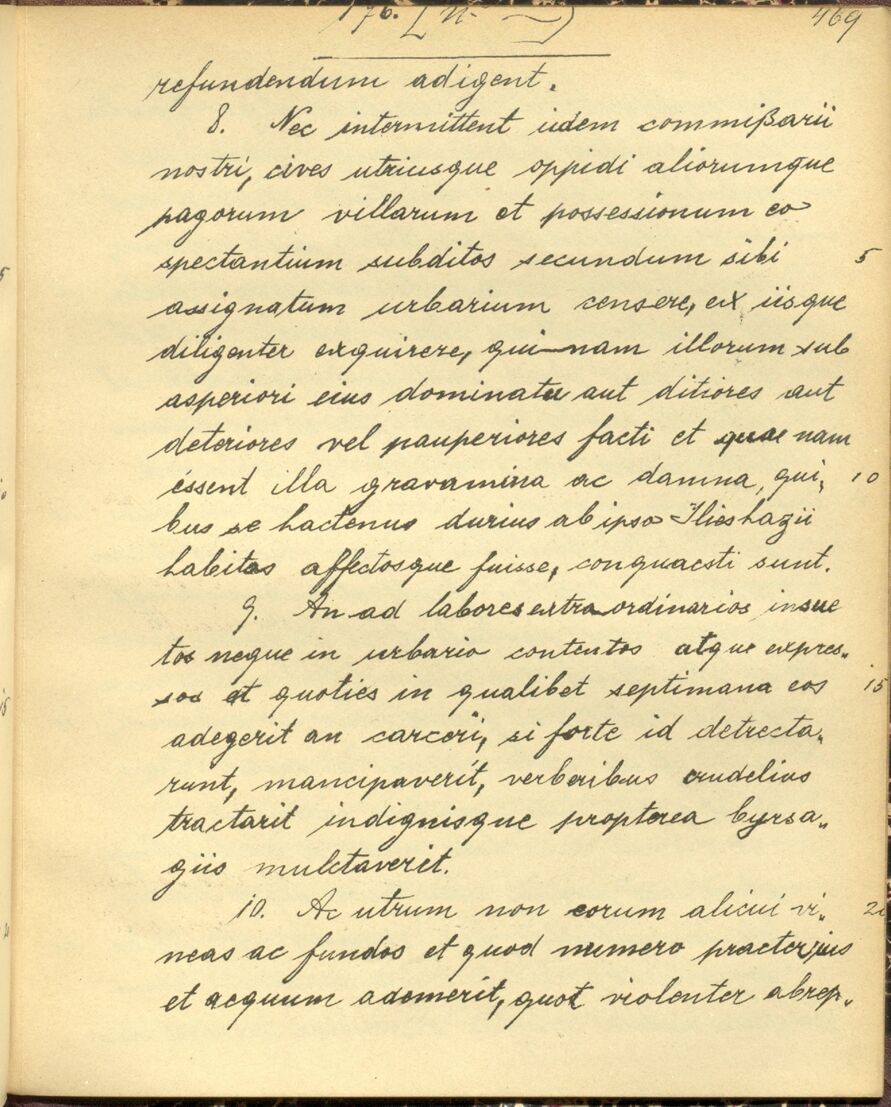 176. [n. —)
469
refundendum adigent.
8. Nec intermittent iidem commißarii
nostri, cives utriusque oppidi aliorumque
pagorum villarum et possessionum eo
spectantium subditos secundum sibi 5
assignatum urbarium censere, ex iisque
diligenter exquirere, qui-nam illorum sub
asperiori eius dominatu aut ditiores aut
deteriores vel pauperiores facti et quae nam
essent illa gravamina ac damna, qui- 10
bus se hactenus durius ab ipso Ilieshazii
habitos affectosque fuisse, conquaesti sunt.
9. An ad labores extra ordinarios insue
tos neque in urbario contentos atque expres-
sos et quoties in qualibet septimana eos 15
adegerit an carceri, si forte id detrecta-
runt, mancipaverit, verberibus crudelius
tractarit indignisque propterea byrsa-
giis mulctaverit.
10. Ac utrum non eorum alicui vi- 20
neas ac fundos et quod numero praeter jus
et aequum ademerit, quot violenter abrep-